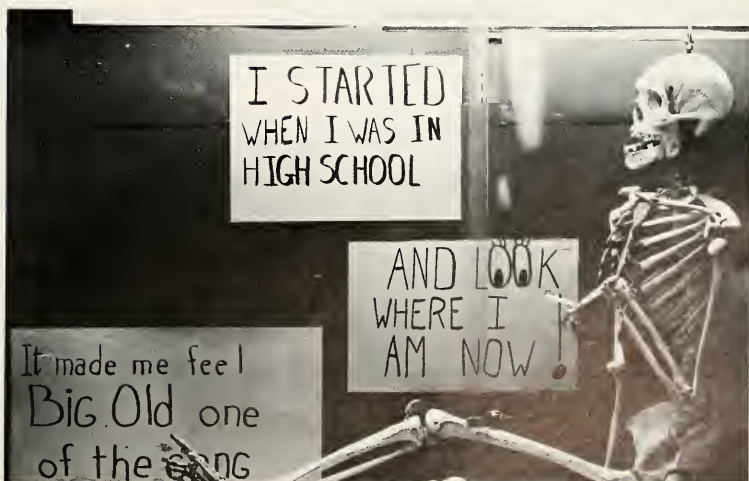 I STARTED
WHEN I WAS IN
HIGH SCHOOL
AND LOOK
WHERE I
AM NOW!
It made me feel
BiG Old one
of the gang